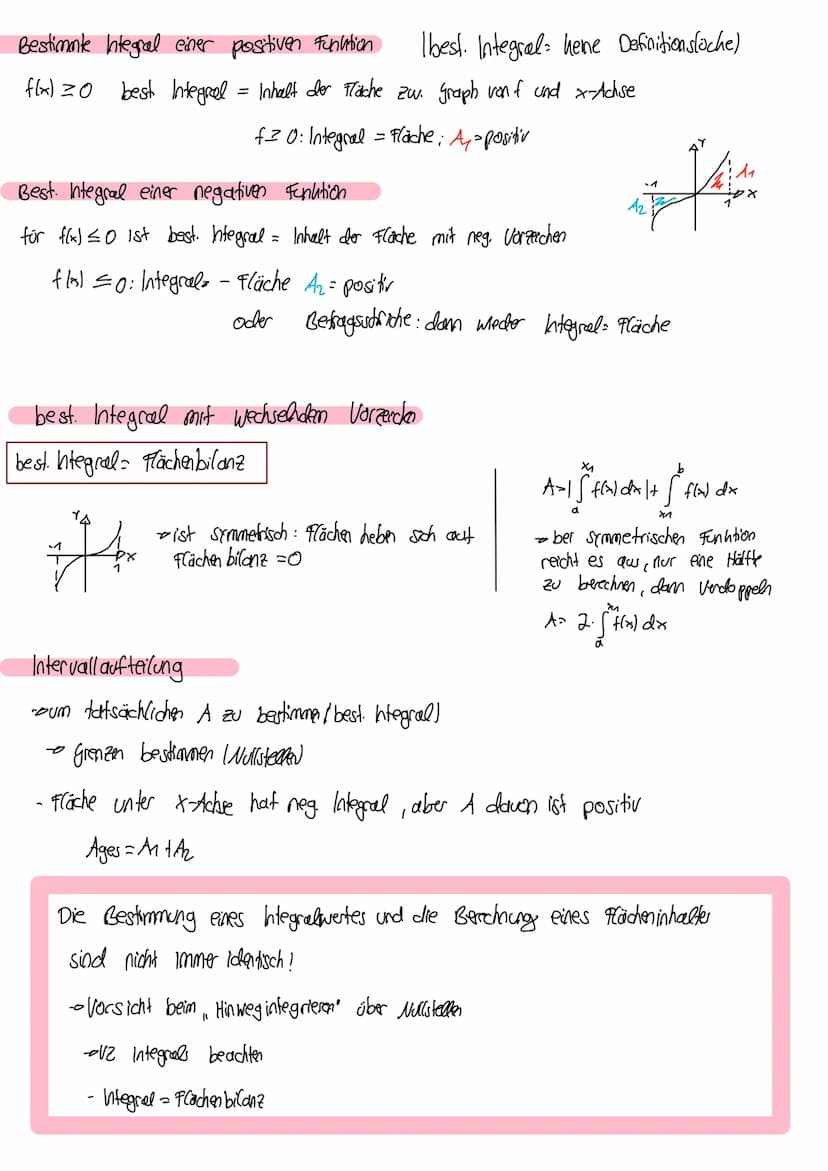 Bestimmte Integral einer positiven Funktion (best. Integral = keine Definitionslücke)
f(x) ≥ 0 best. Integral = Inhalt der Fläche zw. Graph von f und x-Achse
f ≥ 0: Integral = Fläche; A₁ = positiv
Y
A₁
-1
A₂
1
X
Best. Integral einer negativen Funktion
für f(x) ≤ 0 ist best. Integral = Inhalt der Fläche mit neg. Vorzeichen
f(x) ≤ 0: Integral = - Fläche A₂ = positiv
oder Betragsstriche: dann wieder Integral = Fläche
best. Integral mit wechselnden Vorzeichen
best. Integral = Flächenbilanz
Y
-1
1
X
→ ist symmetrisch: Flächen heben sich auf
Flächenbilanz = 0
A = |∫ₐ^x₁ f(x) dx| + ∫ₓ₁^b f(x) dx
→ bei symmetrischen Funktion
reicht es aus, nur eine Hälfte
zu berechnen, dann verdoppeln
A = 2 · ∫ₐ^x₁ f(x) dx
Intervallaufteilung
→ um tatsächlichen A zu bestimmen (best. Integral)
→ Grenzen bestimmen (Nullstellen)
- Fläche unter x-Achse hat neg. Integral, aber A davon ist positiv
Ages = A₁ + A₂
Die Bestimmung eines Integralwertes und die Berechnung eines Flächeninhaltes
sind nicht immer identisch!
→ Vorsicht beim „Hinwegintegrieren" über Nullstellen
→ VZ Integrals beachten
- Integral = Flächenbilanz